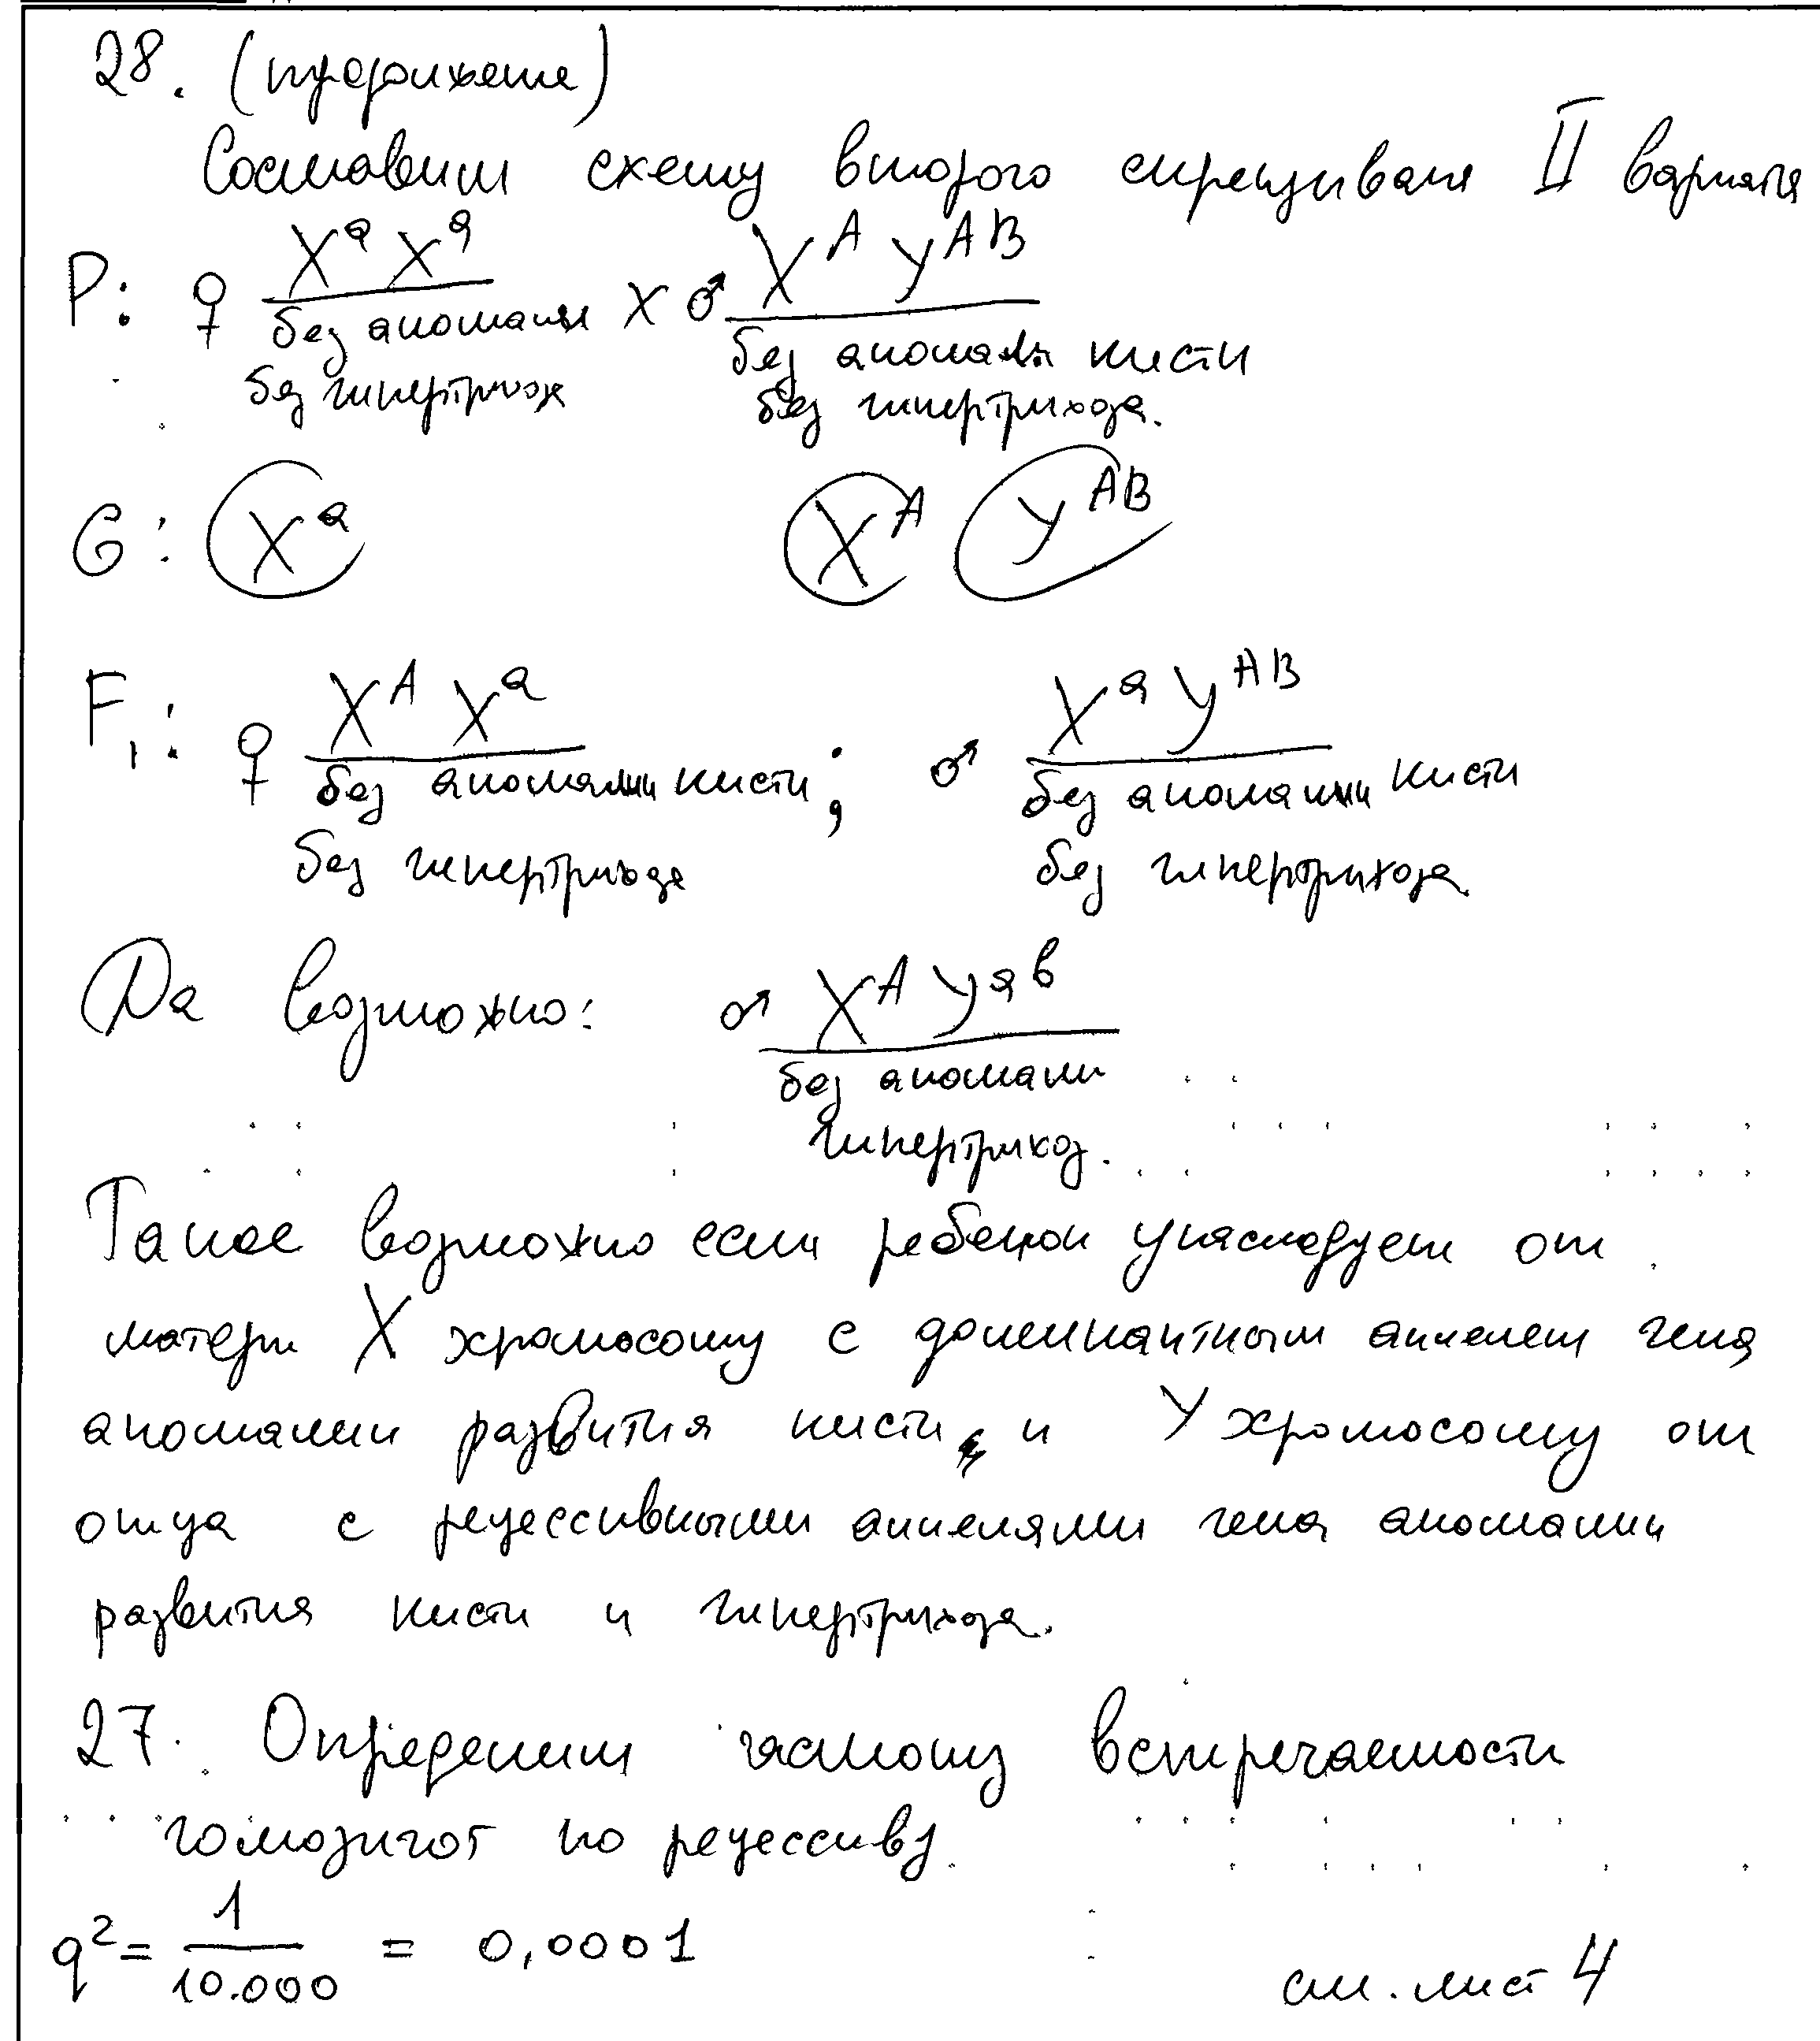 28. (продолжение)
Составим схему второго скрещивания II варианта
P: ♀ XᵃXᵃ x ♂ Xᴬ Yᴬᴮ
без аномалии без аномалии кисти
без гипертрихоза без гипертрихоза.
G: Xᵃ Xᴬ Yᴬᴮ
F₁: ♀ Xᴬ Xᵃ ; ♂ Xᵃ Yᴬᴮ
без аномалии кисти без аномалии кисти
без гипертрихоза без гипертрихоза.
Да возможно: ♂ Xᴬ Yᵃᵇ
без аномалии
гипертрихоз.
Такое возможно если ребенок унаследует от
матери X хромосому с доминантным аллелем гена
аномалии развития кисти и Y хромосому от
отца с рецессивными аллелями гена аномалии
развития кисти и гипертрихоза.
27. Определим частоту встречаемости
гомозигот по рецессиву.
q² = 1/10.000 = 0,0001
см. лист 4